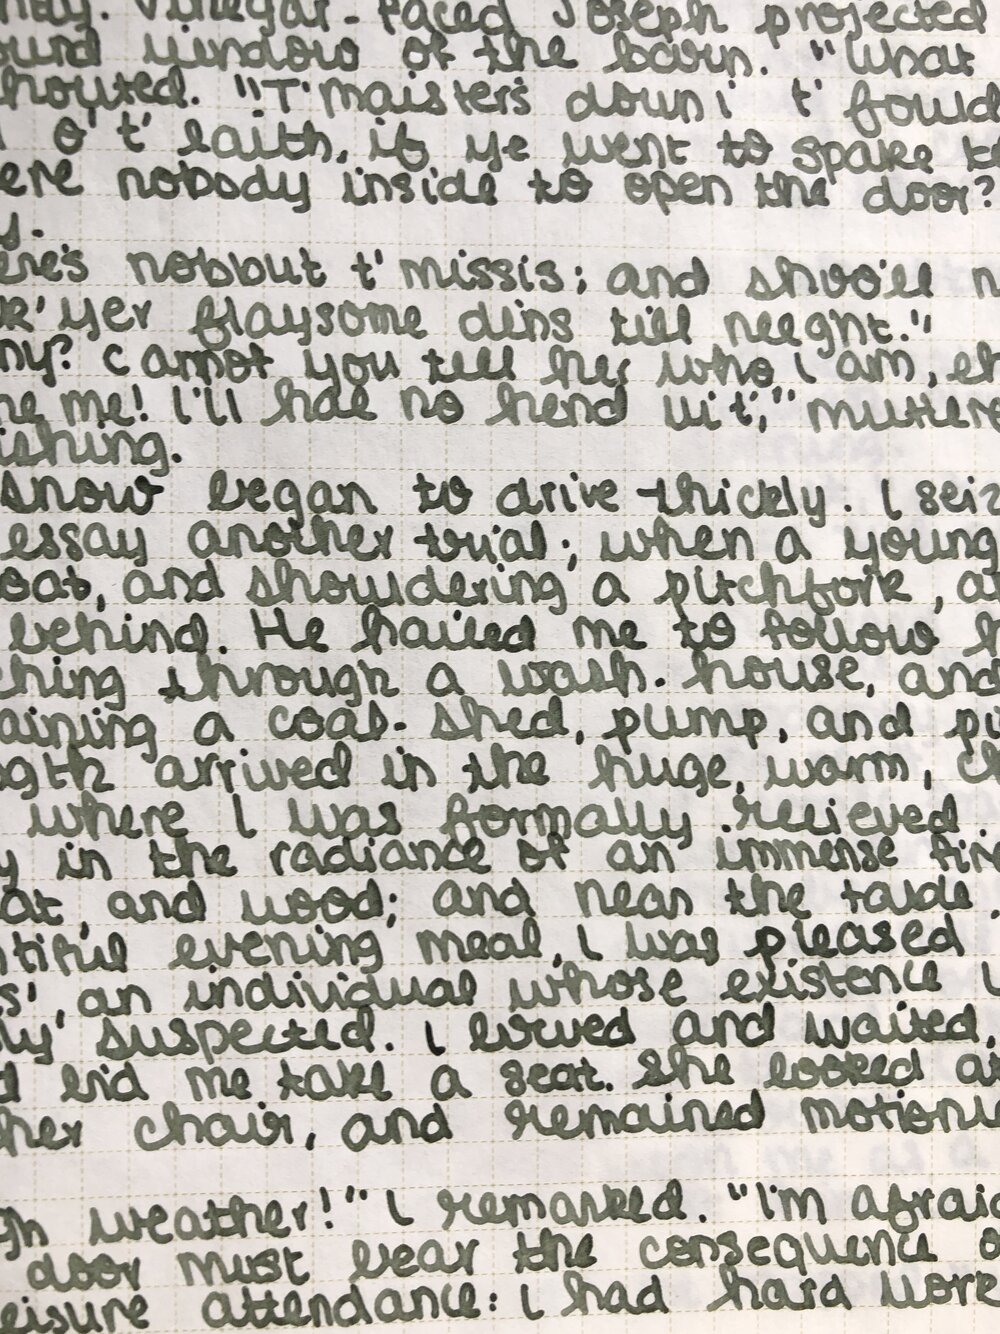 Vinegar-faced Joseph projected
window of the barn. "What
houted. "T' maister's down i' t' fowld
o' t' laith, if ye went to spake
ere nobody inside to open the door?
y.
ere's nobbut t' missis; and shoo'll n
k' yer flaysome dins till neeght."
hy? Cannot you tell her who I am, eh
me! I'll hae no hend wi't," muttere
ishing.
snow began to drive thickly. I seiz
essay another trial; when a young
oat, and shouldering a pitchfork, a
behind. He hailed me to follow h
ching through a wash-house, and
aining a coal-shed, pump, and pi
ngth arrived in the huge, warm, ch
where I was formally recieved
y in the radiance of an immense fire
at, and wood; and near the table,
ntiful evening meal, I was pleased
s', an individual whose existence
ly suspected. I bowed and waited,
d bid me take a seat. She looked at
her chair, and remained motionle
gh weather!" I remarked. "I'm afraid
door must bear the consequence o
eisure attendance: I had hard work